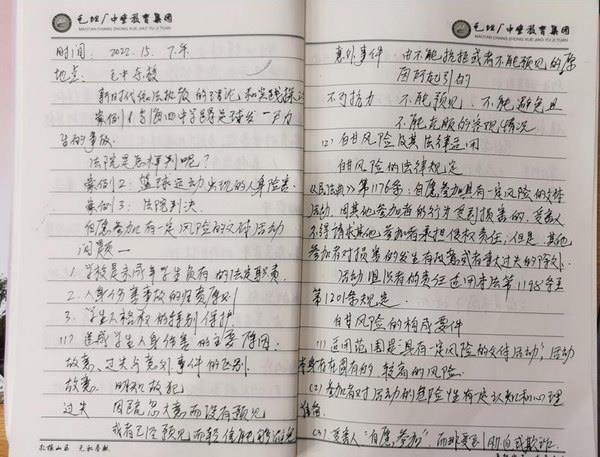 毛坦厂中学教育集团
MAOTAN CHANG ZHONG XUE JIAO YU JI TUAN
时间: 2022.15. 下午
地点:
新时代
案例1
法院是怎样判呢?
案例2: 篮球运动出现的人身险害
案例3: 法院判决
自愿参加有一定风险的文体活动
问题一
1. 学校是未成年学生负有的法定职责
2. 人身伤害事故的归责原则
3. 学生人格权的特别保护
(1) 造成学生人身伤害的主要原因
故意、过失与意外事件的区别
故意: 明知故犯
过失 因疏忽大意而没有预见
或者已经预见而轻信能够避免
毛坦厂中学教育集团
MAOTAN CHANG ZHONG XUE JIAO YU JI TUAN
意外事件: 由不能抗拒或者不能预见的原
因所引起的
不可抗力 不能预见、不能避免且
不能克服的客观情况
(2) 自甘风险及其法律适用
自甘风险的法律规定
《民法典》第1176条: 自愿参加具有一定风险的文体
活动, 因其他参加者的行为受到损害的, 受害人
不得请求其他参加者承担侵权责任; 但是, 其他
参加者对损害的发生有故意或者重大过失的除外.
活动组织者的责任适用本法第1198条至
第1201条规定.
自甘风险的构成要件
(1) 适用范围是“具有一定风险的文体活动”, 活动
本身存在固有的较高的风险.
(2) 参加者对活动的危险性有足认知和心理
准备
(3) 受害人“自愿参加”而非受到胁迫或欺诈.